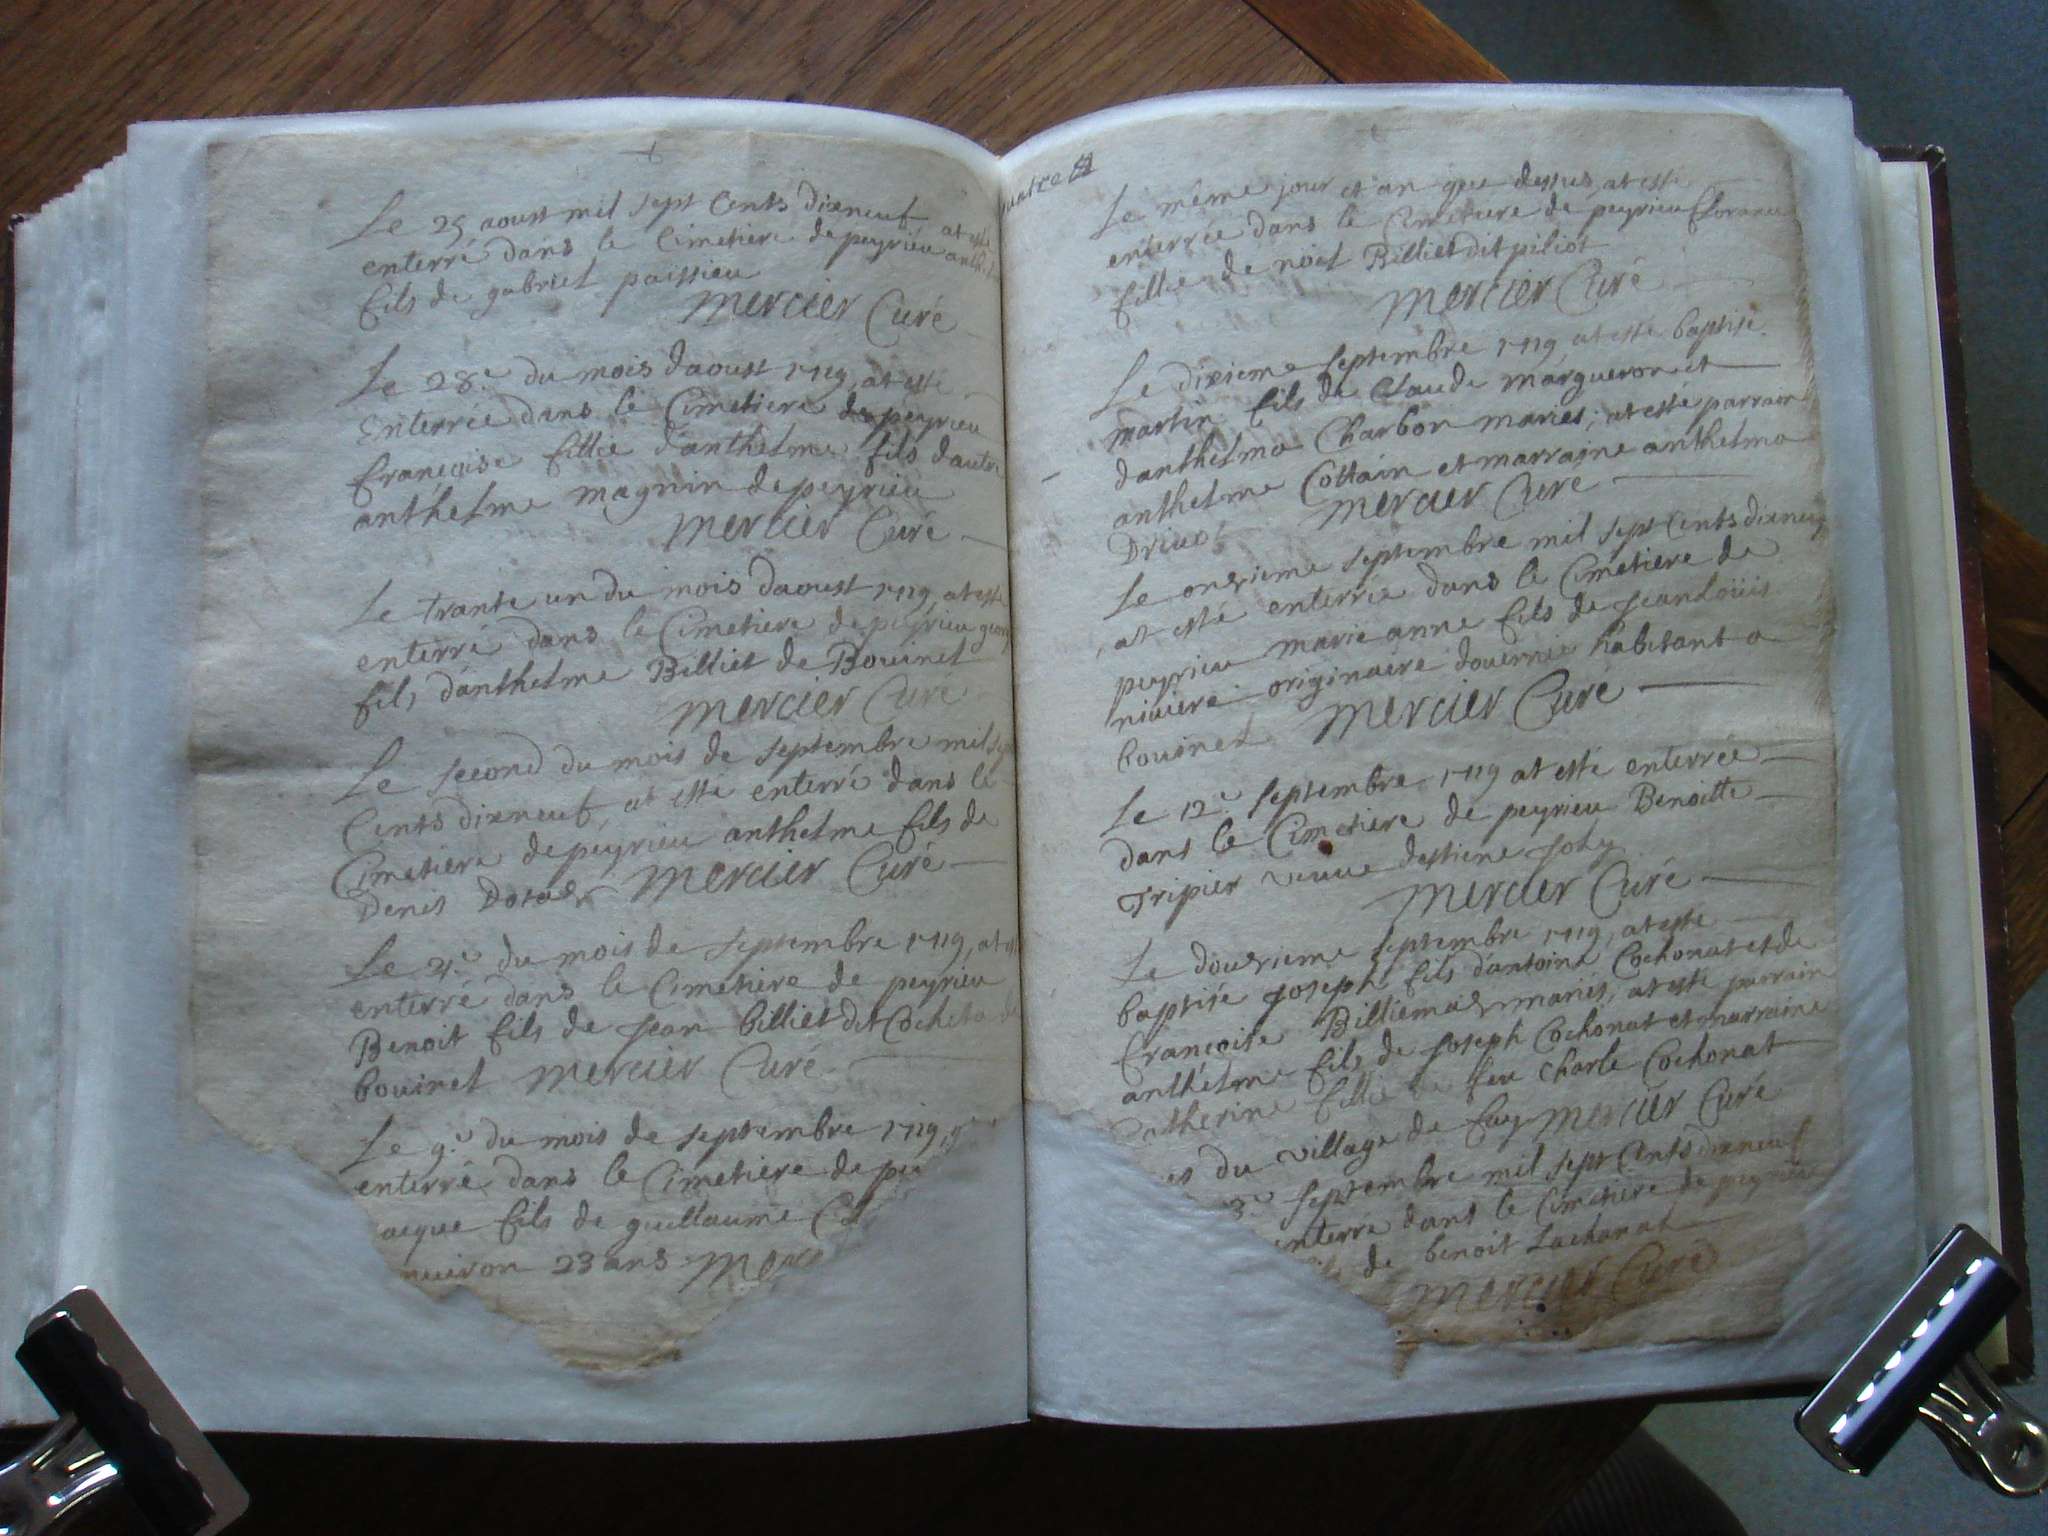 Le 25 aoust mil sept Cents dixneuf at esté
enterré dans le Cimetiere de peyrieu
fils de gabriel paissieu
mercier Curé
Le 28.e du mois daoust 1719, at esté
Enterrée dans le Cimetiere de peyrieu
françoise fillie danthelme fils dautre
anthelme magnin de peyrieu
mercier Curé
Le trante un du mois daoust 1719, at esté
enterré dans le Cimetiere de peyrieu
fils danthelme Billiet de Bovinel
mercier Curé
Le second du mois de septembre mil sept
Cents dixneuf, at esté enterré dans le
Cimetiere de peyrieu anthelme fils de
Denis mercier Curé
Le du mois de septembre 1719, at esté
enterré dans le Cimetiere de peyrieu
Benoit fils de Jean billiet dit Cochet
bovinel mercier Curé
Le 9.e du mois de septembre 1719,
enterré dans le Cimetiere de pey
acque fils de guillaume
nuiron 23 ans Merc
Le même jour et an que dessus at esté
enterrée dans le Cimetiere de peyrieu
fillie de noël Billiet dit piliot
mercier Curé
Le dixieme septembre 1719 at esté baptisé
martin fils de Claude margueron et
danthelma Charbon mariés, at esté parrain
anthelme Cottain et marraine anthelma
Drivot mercier Curé
Le onzieme septembre mil sept Cents dixneuf
, at esté enterrée dans le Cimetiere de
peyrieu marie anne fils de Jean Loüis
riviere originaire dauernie habitant a
bovinel mercier Curé
Le 12.e septembre 1719 at esté enterrée
dans le Cimetiere de peyrieu Benoitte
Tripier veuve destiene Joly
mercier Curé
Le douzieme septembre 1719, at esté
baptisé Joseph fils dantoine Cochonat et de
françoise Billiemaz mariés, at esté parrain
anthelme fils de Joseph Cochonat et marraine
atherine fillie de feu Charle Cochonat
es du village de mercier Curé
3.e septembre mil sept Cents dixneuf
enterré dans le Cimetiere de peyrieu
fils de benoit Lachanal
mercier Curé